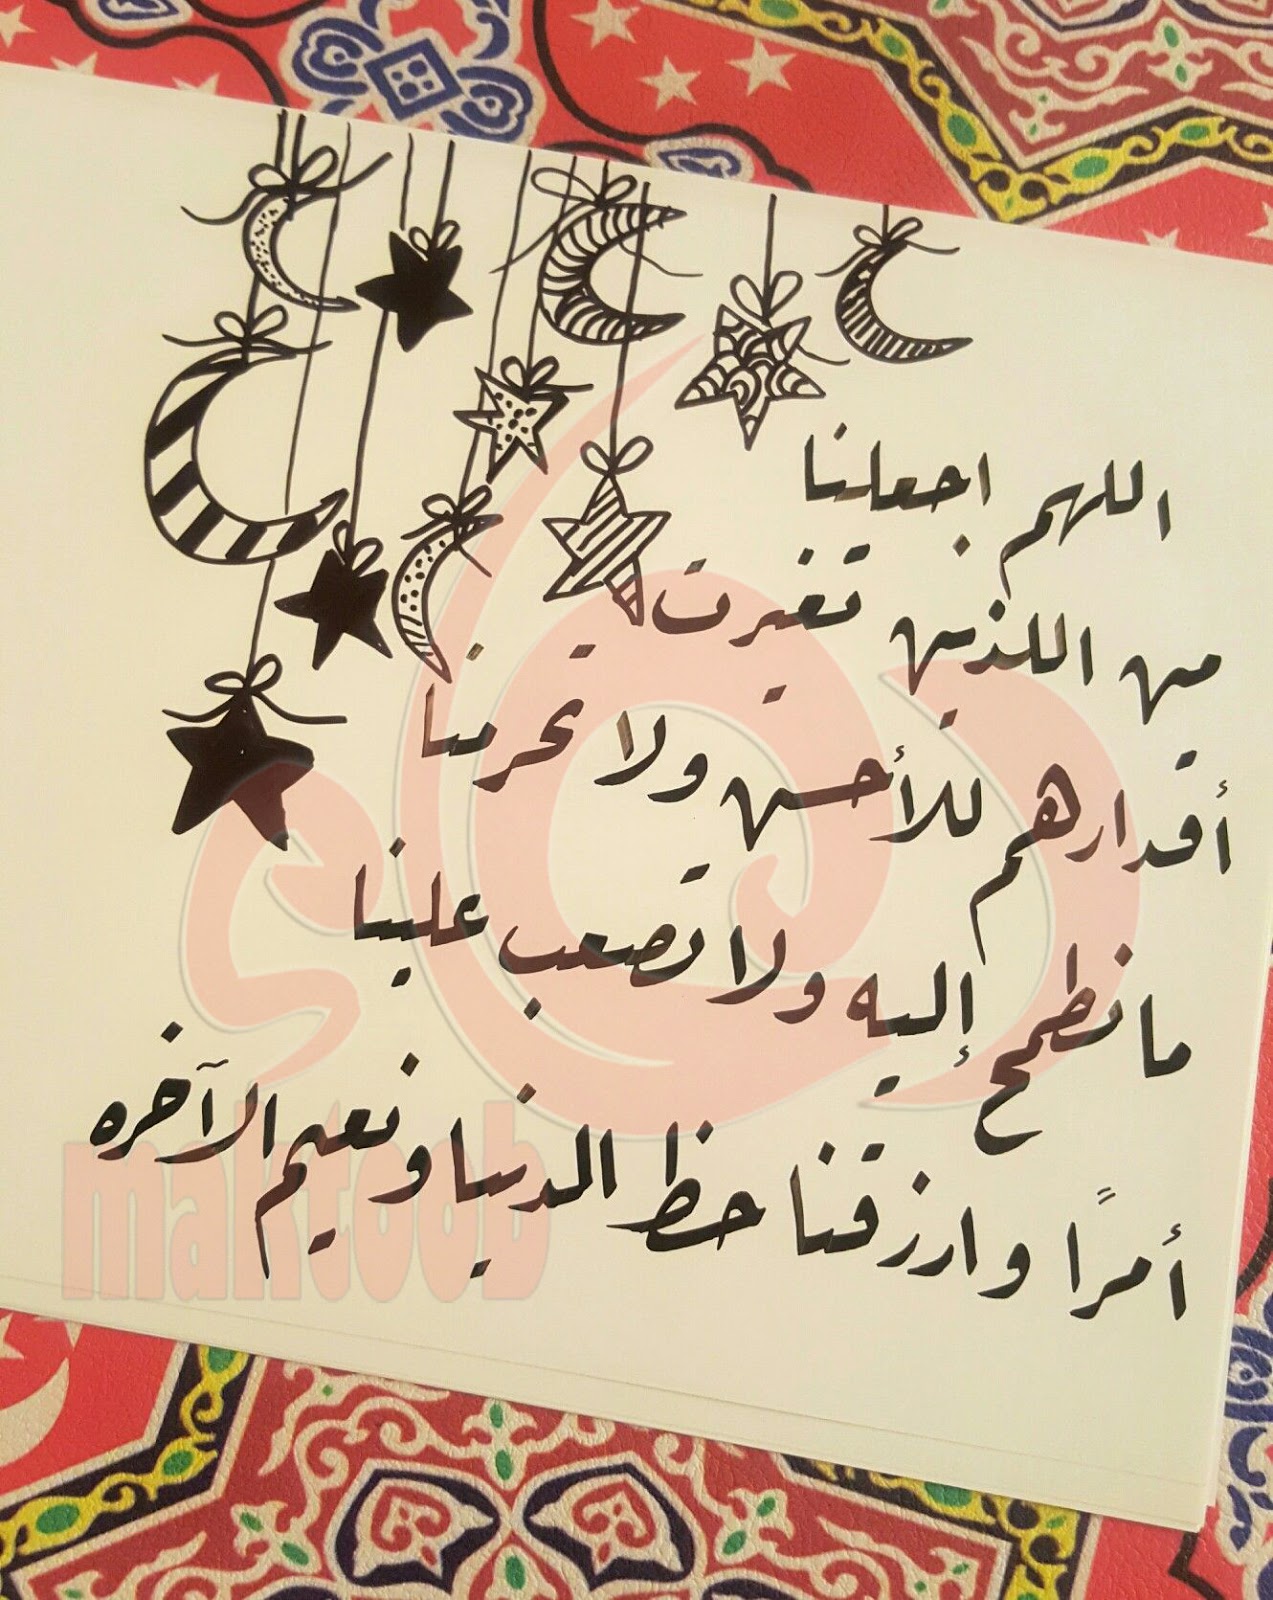 اللهم اجعلنا
من اللذين تغيرت
أقدارهم للأحسن ولا تحرمنا
ما نطمح إليه ولا تصعب علينا
أمرًا وارزقنا حظ الدنيا ونعيم الآخره
maktoob